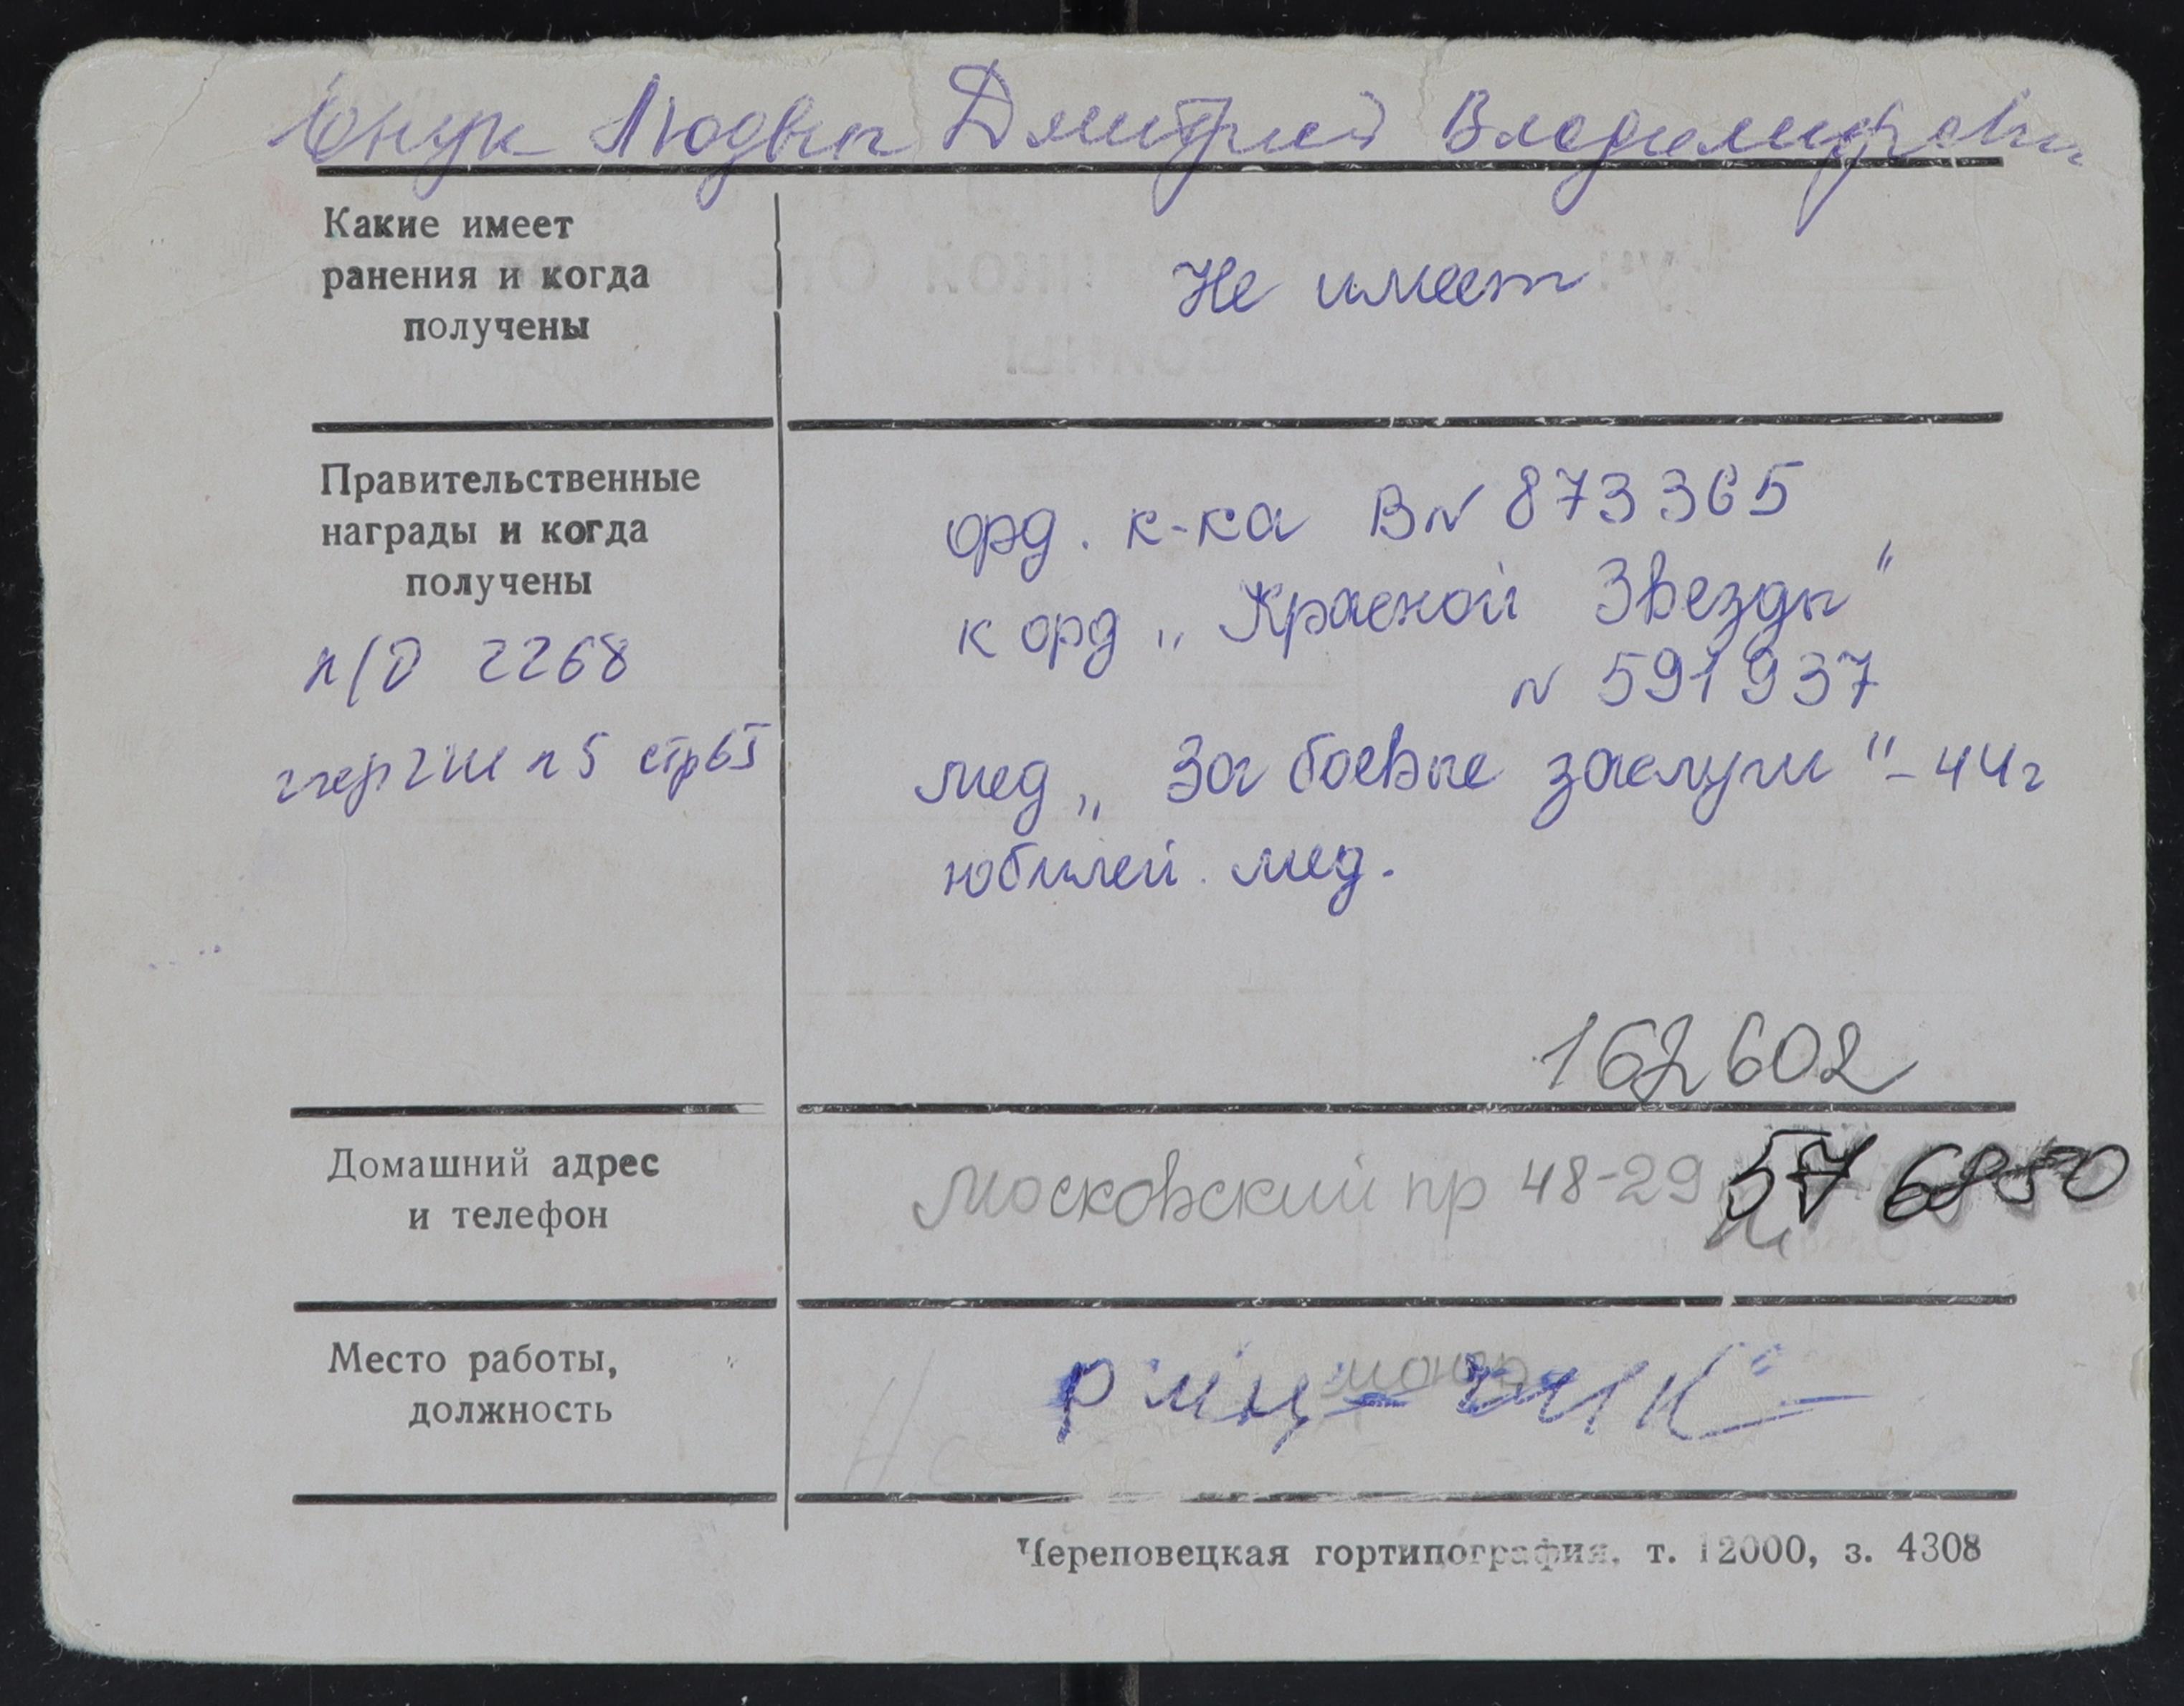 внук Людвиг Дмитрий Владимирович
Какие имеет
ранения и когда
получены
Не имеет
Правительственные
награды и когда
получены
п/о 2268
орд. к-ка В№ 873365
к орд „Красной Звезды"
№ 591937
мед „За боевые заслуги" - 44г
юбилей. мед.
162602
Домашний адрес
и телефон
Московский пр 48-29
Место работы,
должность
РМЦ-
Череповецкая гортипография, т. 12000, з. 4308